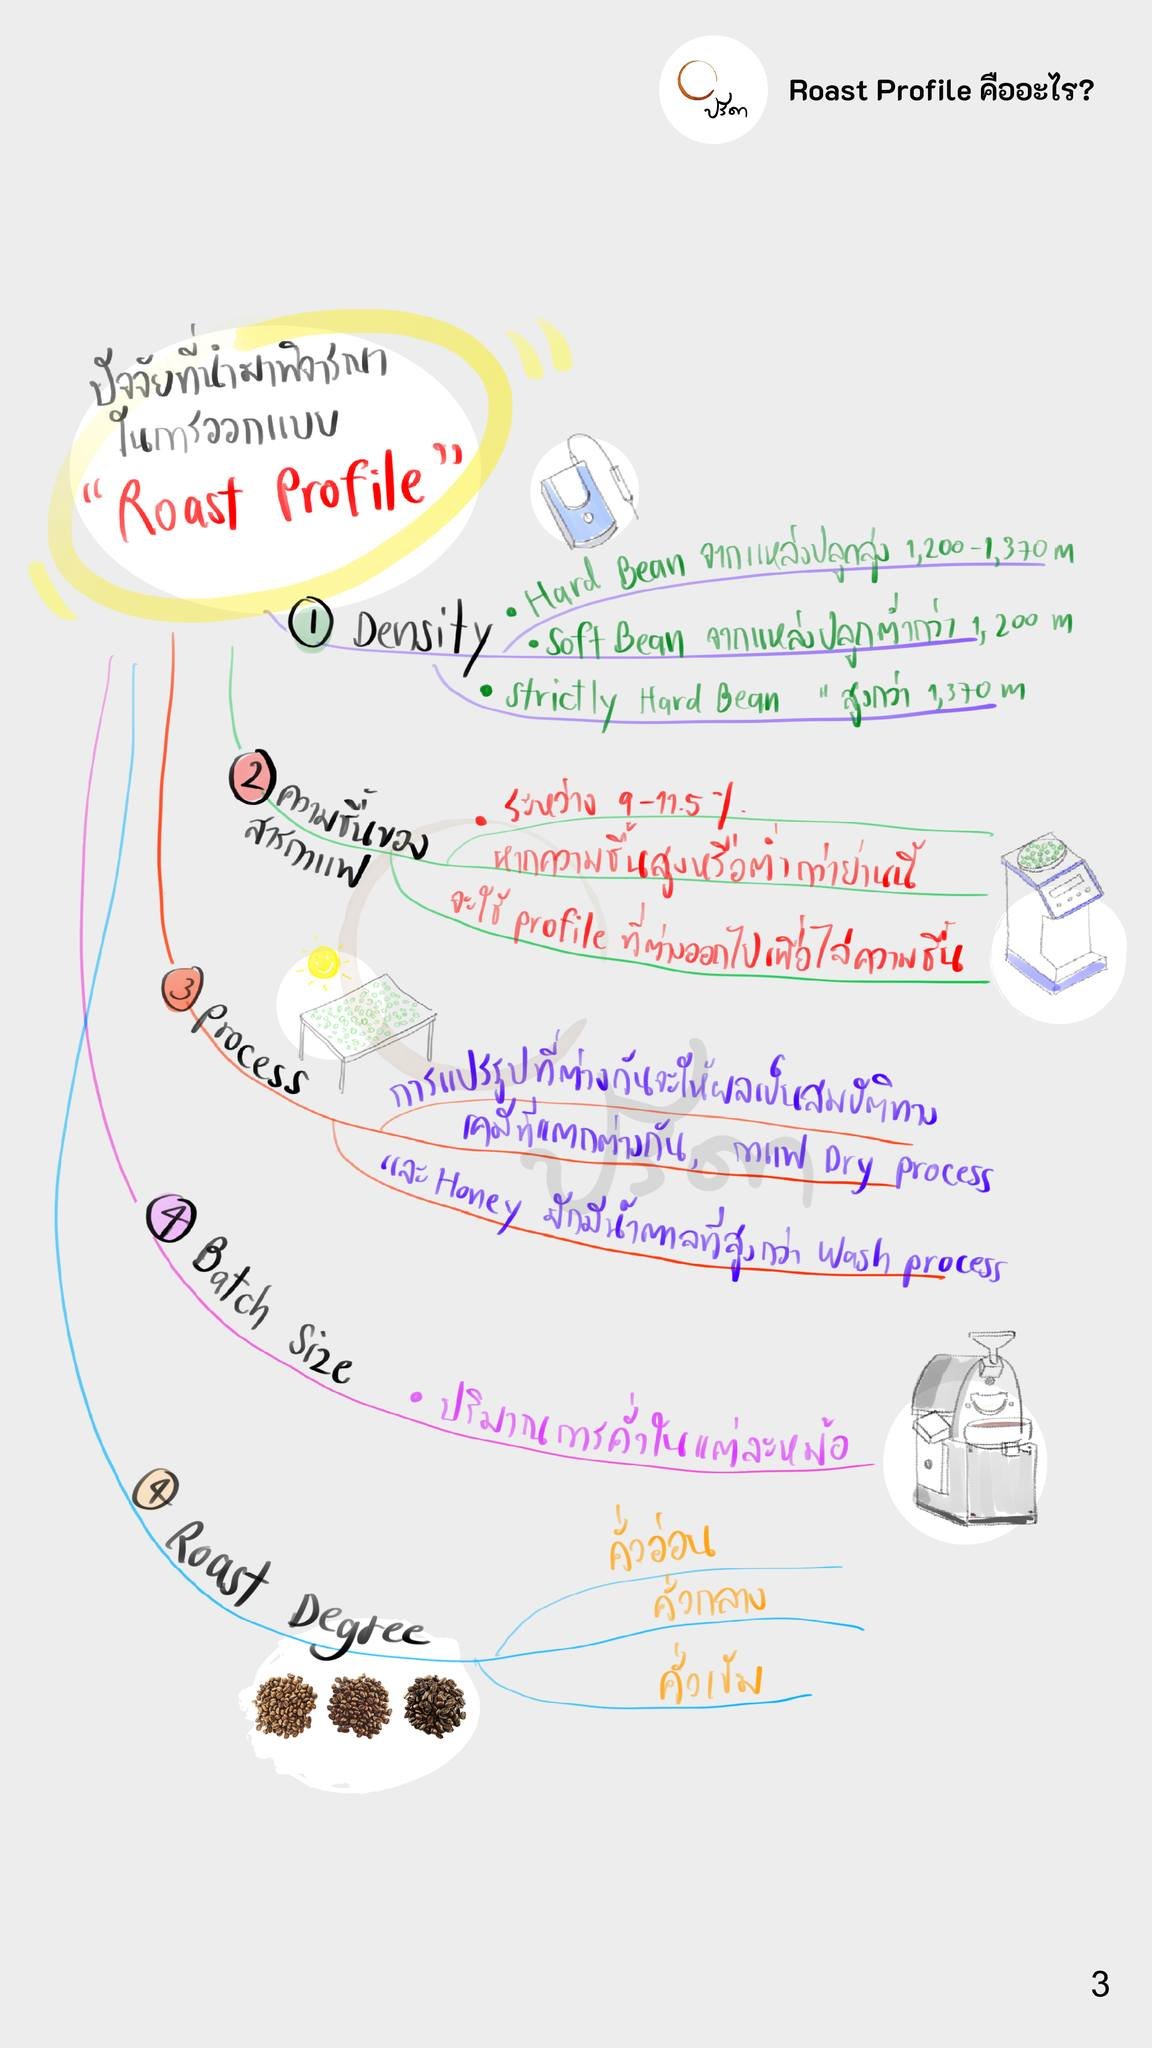 ปรีดา
Roast Profile คืออะไร?
ปัจจัยที่นำมาพิจารณา
ในการออกแบบ
“Roast Profile”
1 Density
• Hard Bean จากแหล่งปลูกสูง 1,200-1,370 m
• Soft Bean จากแหล่งปลูกต่ำกว่า 1,200 m
• Strictly Hard Bean " สูงกว่า 1,370 m
2 ความชื้นของ
สารกาแฟ
• ระหว่าง 9-11.5 %.
หากความชื้นสูงหรือต่ำกว่าย่านนี้
จะใช้ profile ที่ต่างออกไปเพื่อไล่ความชื้น
3 Process
การแปรรูปที่ต่างกันจะให้ผลเป็นสมบัติทาง
เคมีที่แตกต่างกัน, กาแฟ Dry process
และ Honey มักมีน้ำตาลที่สูงกว่า Wash process
ปรีดา
4 Batch Size
• ปริมาณการคั่วในแต่ละหม้อ
4 Roast Degree
คั่วอ่อน
คั่วกลาง
คั่วเข้ม
3